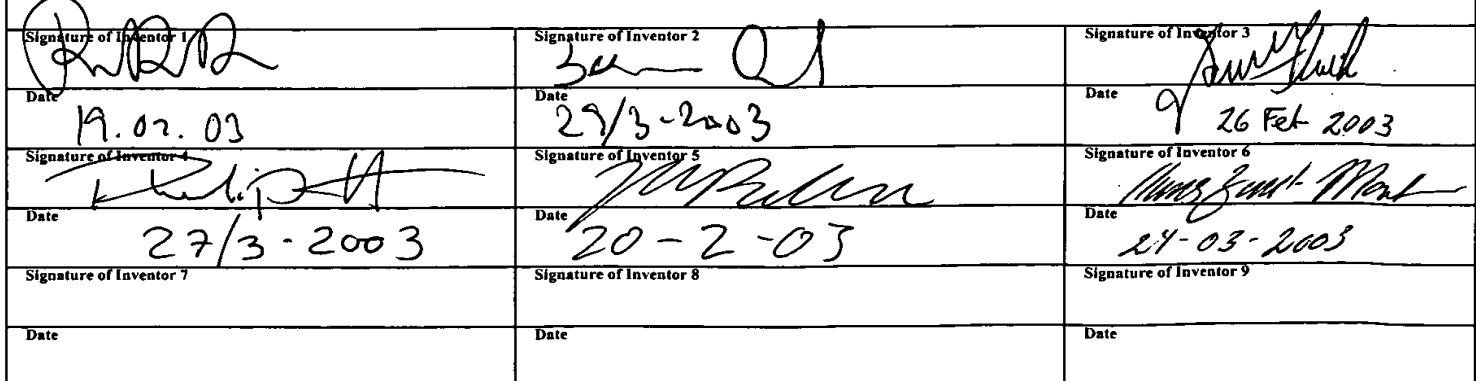 Signature of Inventor 1
Signature of Inventor 2
Signature of Inventor 3
Date
19.02.03
Date
29/3-2003
Date
26 Feb 2003
Signature of Inventor 4
Signature of Inventor 5
Signature of Inventor 6
Date
27/3-2003
Date
20-2-03
Date
24-03-2003
Signature of Inventor 7
Signature of Inventor 8
Signature of Inventor 9
Date
Date
Date